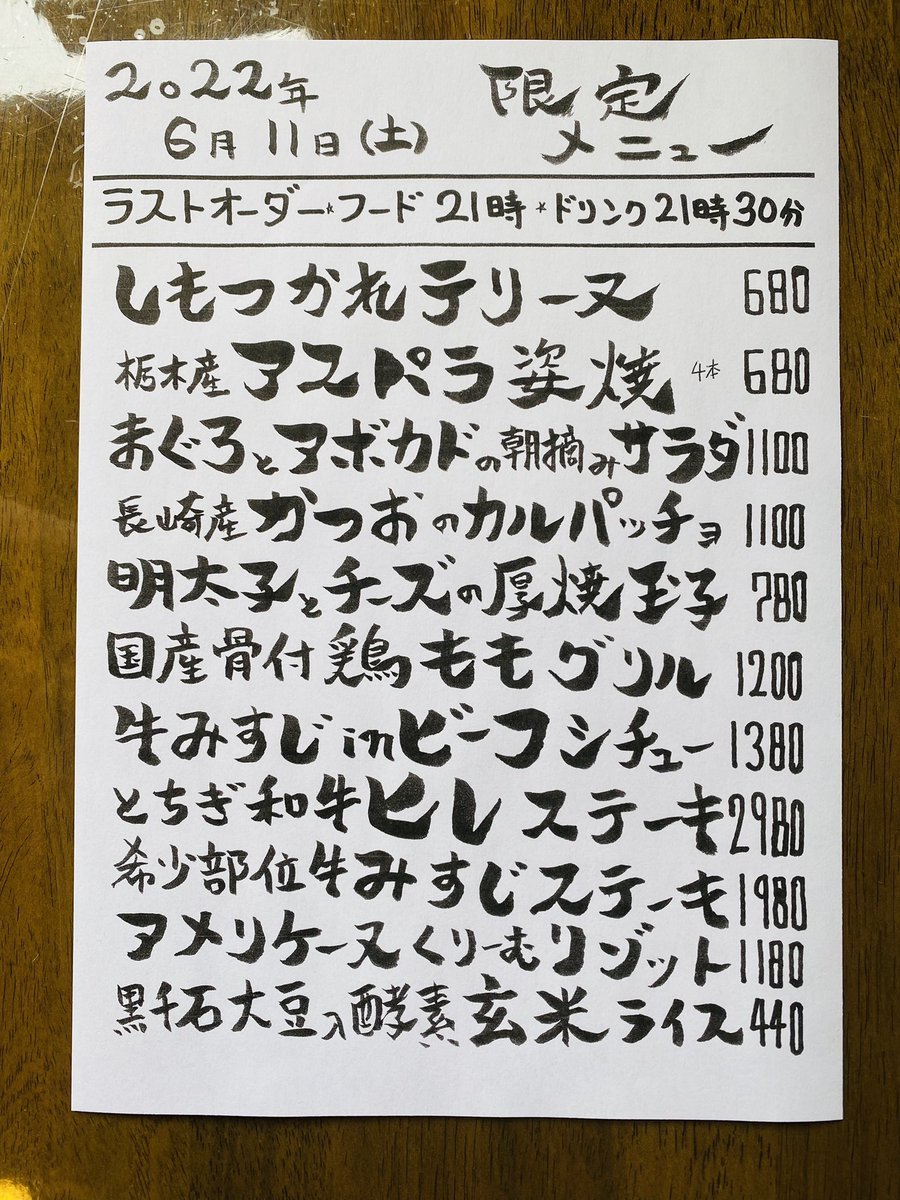 2022年 限定
6月11日(土) メニュー
ラストオーダー*フード21時*ドリンク21時30分
しもつかれテリーヌ 680
栃木産アスパラ姿焼 4本 680
まぐろとアボカドの朝摘みサラダ 1100
長崎産かつおのカルパッチョ 1100
明太子とチーズの厚焼玉子 780
国産骨付鶏ももグリル 1200
牛みすじinビーフシチュー 1380
とちぎ和牛ヒレステーキ 2980
希少部位牛みすじステーキ 1980
アメリケーヌくりーむリゾット 1180
黒千石大豆入酵素玄米ライス 440